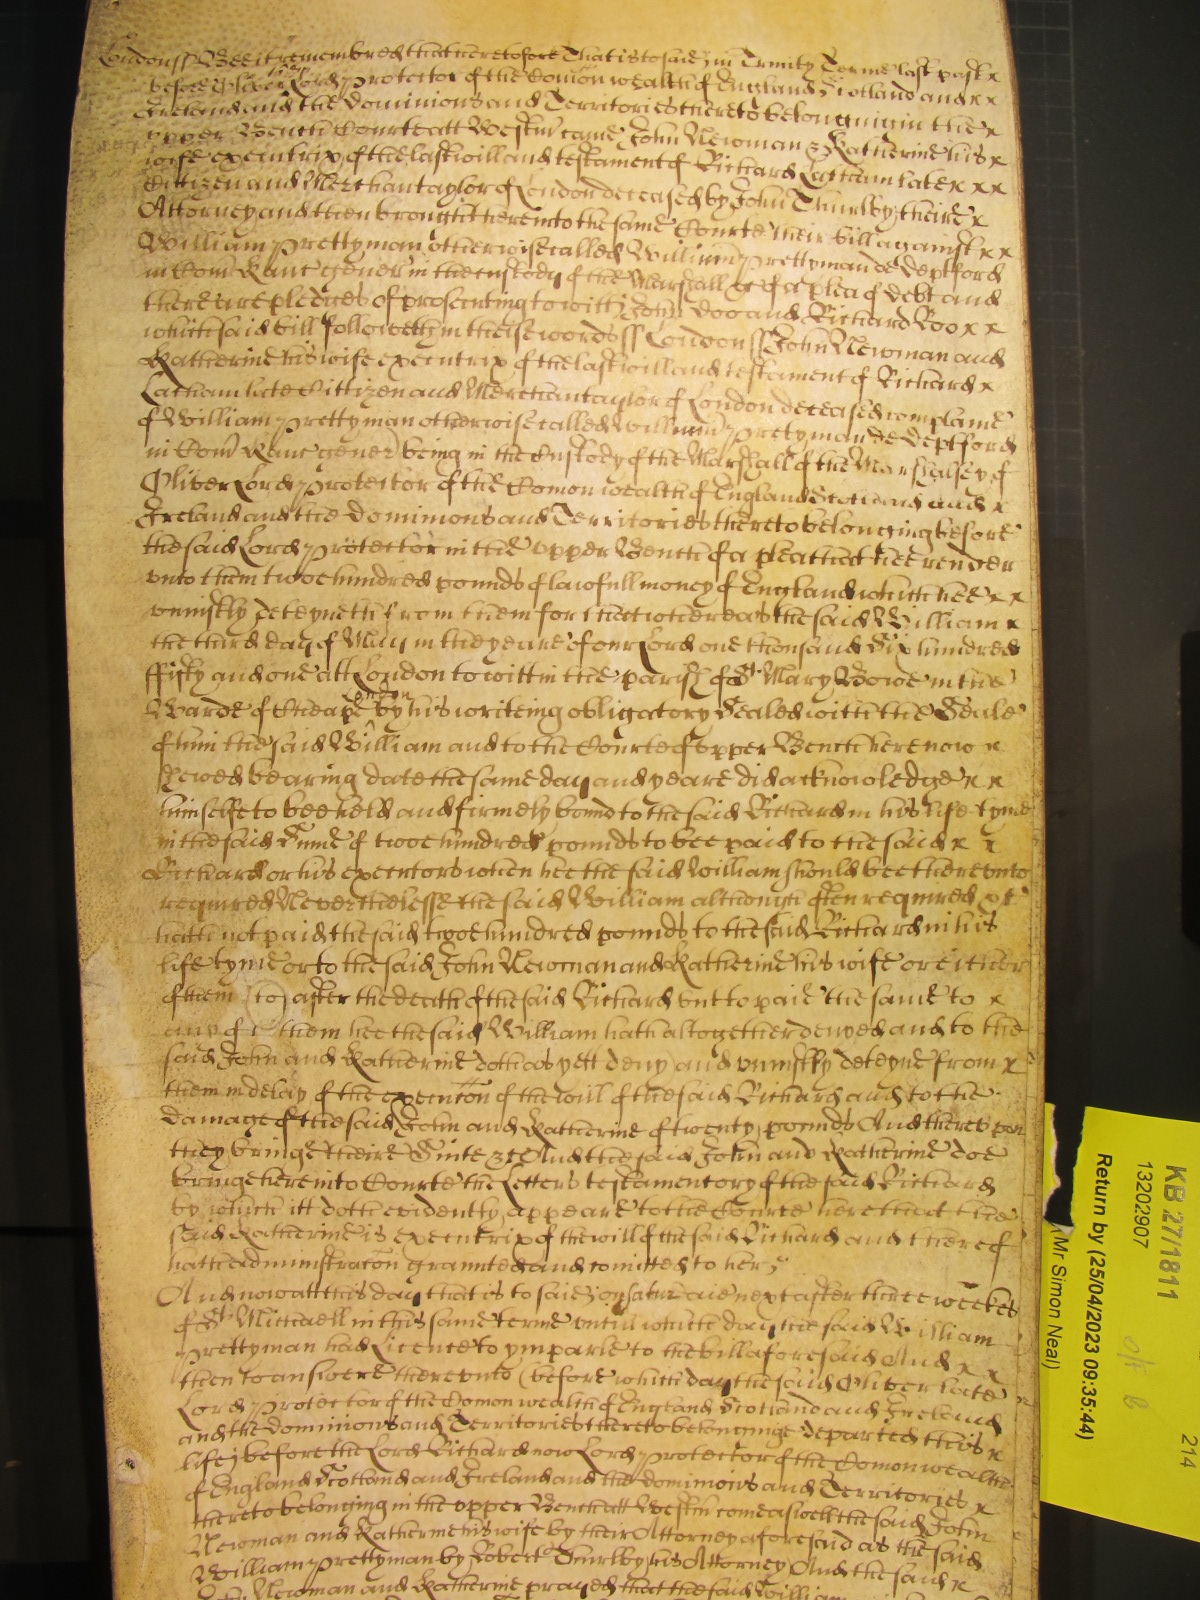 Londonss Bee it remembred that heretofore That is to saie in Trinity Terme last past x
before Oliver late Lord Protector of the Comon wealth of England Scotland and x x
Ireland and the dominions and Territories thereto belonginge in the x
upper Bench Courte att Westm̃ came John Newman & Katherine his x
wife executrix of the last will and testament of Richard Latham late x x x
Cittizen and Merchantaylor of London deceased by John Thurlby theire x
Attorney and then brought here into the same Courte their bill against x x
William Prettyman otherwise called William Prettyman de deptford
in Com̃ Kanc̃ gener̃ in the custody of the Marshall &c of a plea of debt and
there are pledges of prosecuting to witt John Doo and Richard Roo x x
which said bill followeth in theise words ss Londonss John Newman and
Katherine his wife executrix of the last will and testament of Richard x
Latham late Cittizen and Merchantaylor of London deceased complaine
of William Prettyman otherwise called William Prettyman de deptford
in Com̃ Kanc̃ gener̃ being in the Custody of the Marshall of the Marshalsey of
Oliver Lord Protector of the Comon wealth of England Scotland and x
Ireland and the dominions and Territories thereto belonging before
the said Lord Protector in the upper Bench of a plea that hee render
unto them twoe hundred pounds of lawfull money of England which hee x x
uniustly deteyneth from them for that whereas the said William x
the third day of May in the yeare of our Lord one thousand Six hundred
fifty and one att London to witt in the parish of St. Mary Bowe in the
Warde of Cheape London by his writeing obligatory Sealed with the Seale
of him the said William and to the Courte of upper Bench here now x
shewed bearing date the same day and yeare did acknowledge x x
himselfe to bee held and firmely bound to the said Richard in his life tyme
in the said Sum̃e of twoe hundred pounds to bee paid to the said x x
Richard or his executors when hee the said William should bee thereunto
required Neverthelesse the said William although often required &c
hath not paid the said twoe hundred pounds to the said Richard in his
life tyme or to the said John Newman and Katherine his wife or either
of them (to) after the death of the said Richard but to paie the same to x
any of them hee the said William hath altogether denyed and to the
said John and Katherine doth as yett deny and uniustly deteyne from x
them in delay of the execution of the will of the said Richard and to the
damage of the said John and Katherine of twenty pounds And thereupon
they bringe theire Suite &c And the said John and Katherine doe
bringe here into Courte the Letters testamentory of the said Richard
by which itt doth evidently appeare to the Courte here that the
said Katherine is executrix of the will of the said Richard and thereof
hath administrac̃on graunted and com̃itted to her &c
And now att this day that is to saie on Satur̃ daie next after three weekes
of St. Michaell in this same terme untill which day the said William
Prettyman had Licence to ymparle to the bill aforesaid And x x
then to answere thereunto (before which day the said Oliver late
Lord Protector of the Comon wealth of England Scotland and Ireland
and the dominions and Territories thereto belonginge departed this x
life) before the Lord Richard now Lord Protector of the Comonwealth
of England Scotland and Ireland and the dominions and Territories x
thereto belonging in the upper Bench att Westm̃ come aswell the said John
Newman and Katherine his wife by their Attorney aforesaid as the said
William Prettyman by Robert Thurlby his Attorney And the said x
John Newman and Katherine prayed that the said William
KB 27/1811
13202907
Return by (25/04/2023 09:35:44)
Mr Simon Neal)
214